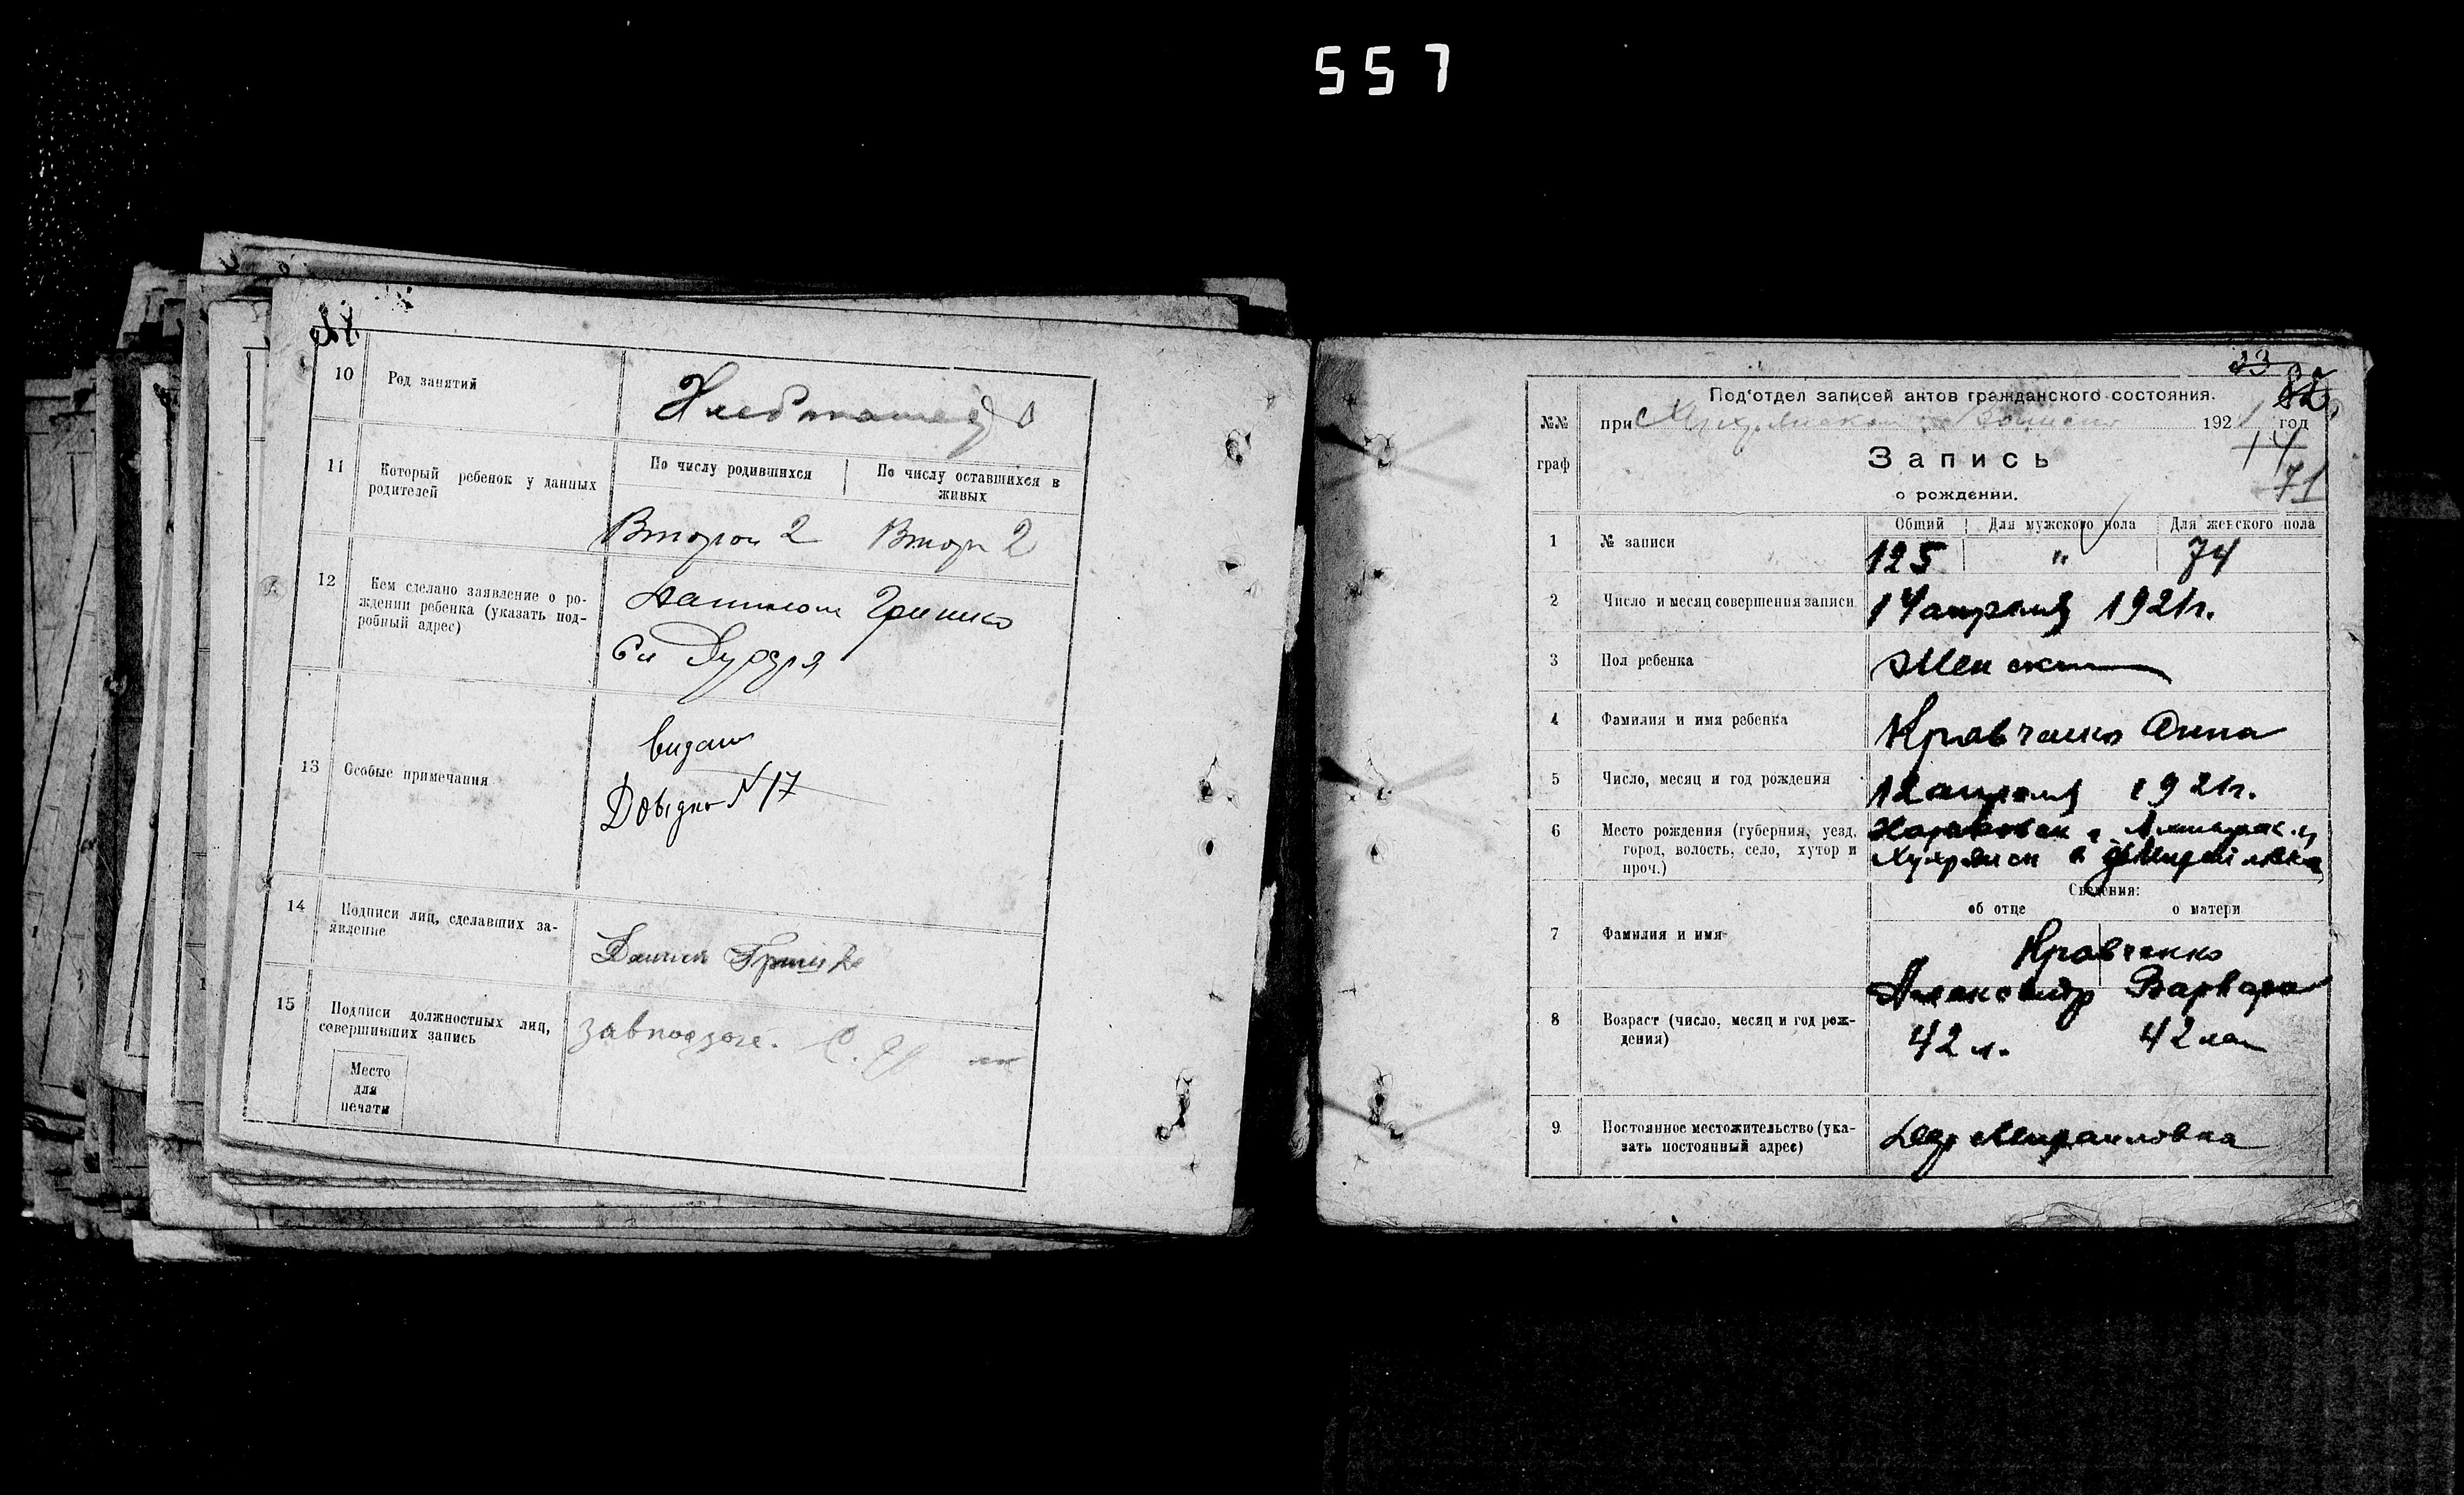 557
10
Род занятий
11
Который ребенок у данных
родителей
По числу родившихся
По числу оставшихся в
живых
Второй 2
Втор 2
12
Кем сделано заявление о ро-
ждении ребенка (указать под-
робный адрес)
Гришко
13
Особые примечания
видано
№ 17
14
Подписи лиц, сделавших за-
явление
15
Подписи должностных лиц,
совершивших запись
Место
для
печати
23
Под'отдел записей актов гражданского состояния.
№№
граф
при
1921 год
14
71
Запись
о рождении.
Общий
Для мужского пола
Для женского пола
1
№ записи
125
"
74
2
Число и месяц совершения записи
14 апреля 1921 г.
3
Пол ребенка
Женский
4
Фамилия и имя ребенка
Кравченко Анна
5
Число, месяц и год рождения
12 апреля 1921 г.
6
Место рождения (губерния, уезд,
город, волость, село, хутор и
проч.)
Сведения:
об отце
о матери
7
Фамилия и имя
Кравченко
Александр Варвара
8
Возраст (число, месяц и год рож-
дения)
42 л.
42 лет
9
Постоянное местожительство (ука-
зать постоянный адрес)